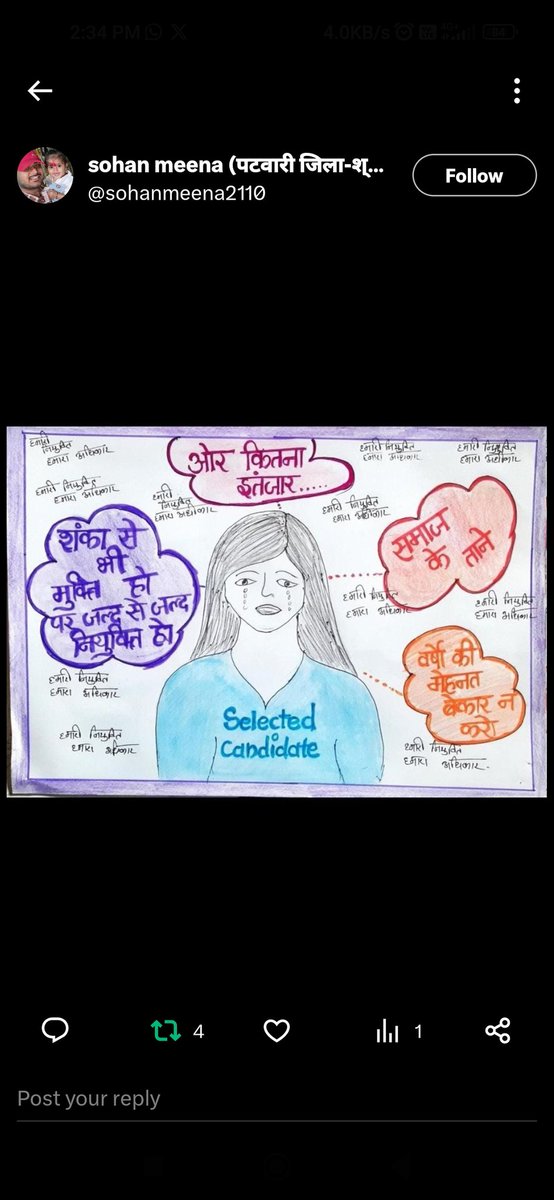 2:34 PM
4.0KB/s
84
sohan meena (पटवारी जिला-श्...
@sohanmeena2110
Follow
हमारी
नियुक्ति
हमारा अधिकार
हमारी नियुक्ति
हमारा अधिकार
हमारी
नियुक्ति
हमारा अधिकार
ओर कितना
इंतजार.....
हमारी नियुक्ति
हमारा अधिकार
हमारी नियुक्ति
हमारा अधिकार
हमारी नियुक्ति
हमारा अधिकार
शंका से
भी
मुक्ति हो
पर जल्द से जल्द
नियुक्ति हो
समाज
के ताने
हमारी नियुक्ति
हमारा अधिकार
हमारी नियुक्ति
हमारा अधिकार
वर्षो की
मेहनत
बेकार न
करो
हमारी नियुक्ति
हमारा अधिकार
हमारी नियुक्ति
हमारा अधिकार
हमारी नियुक्ति
हमारा अधिकार
Selected
Candidate
4
1
Post your reply